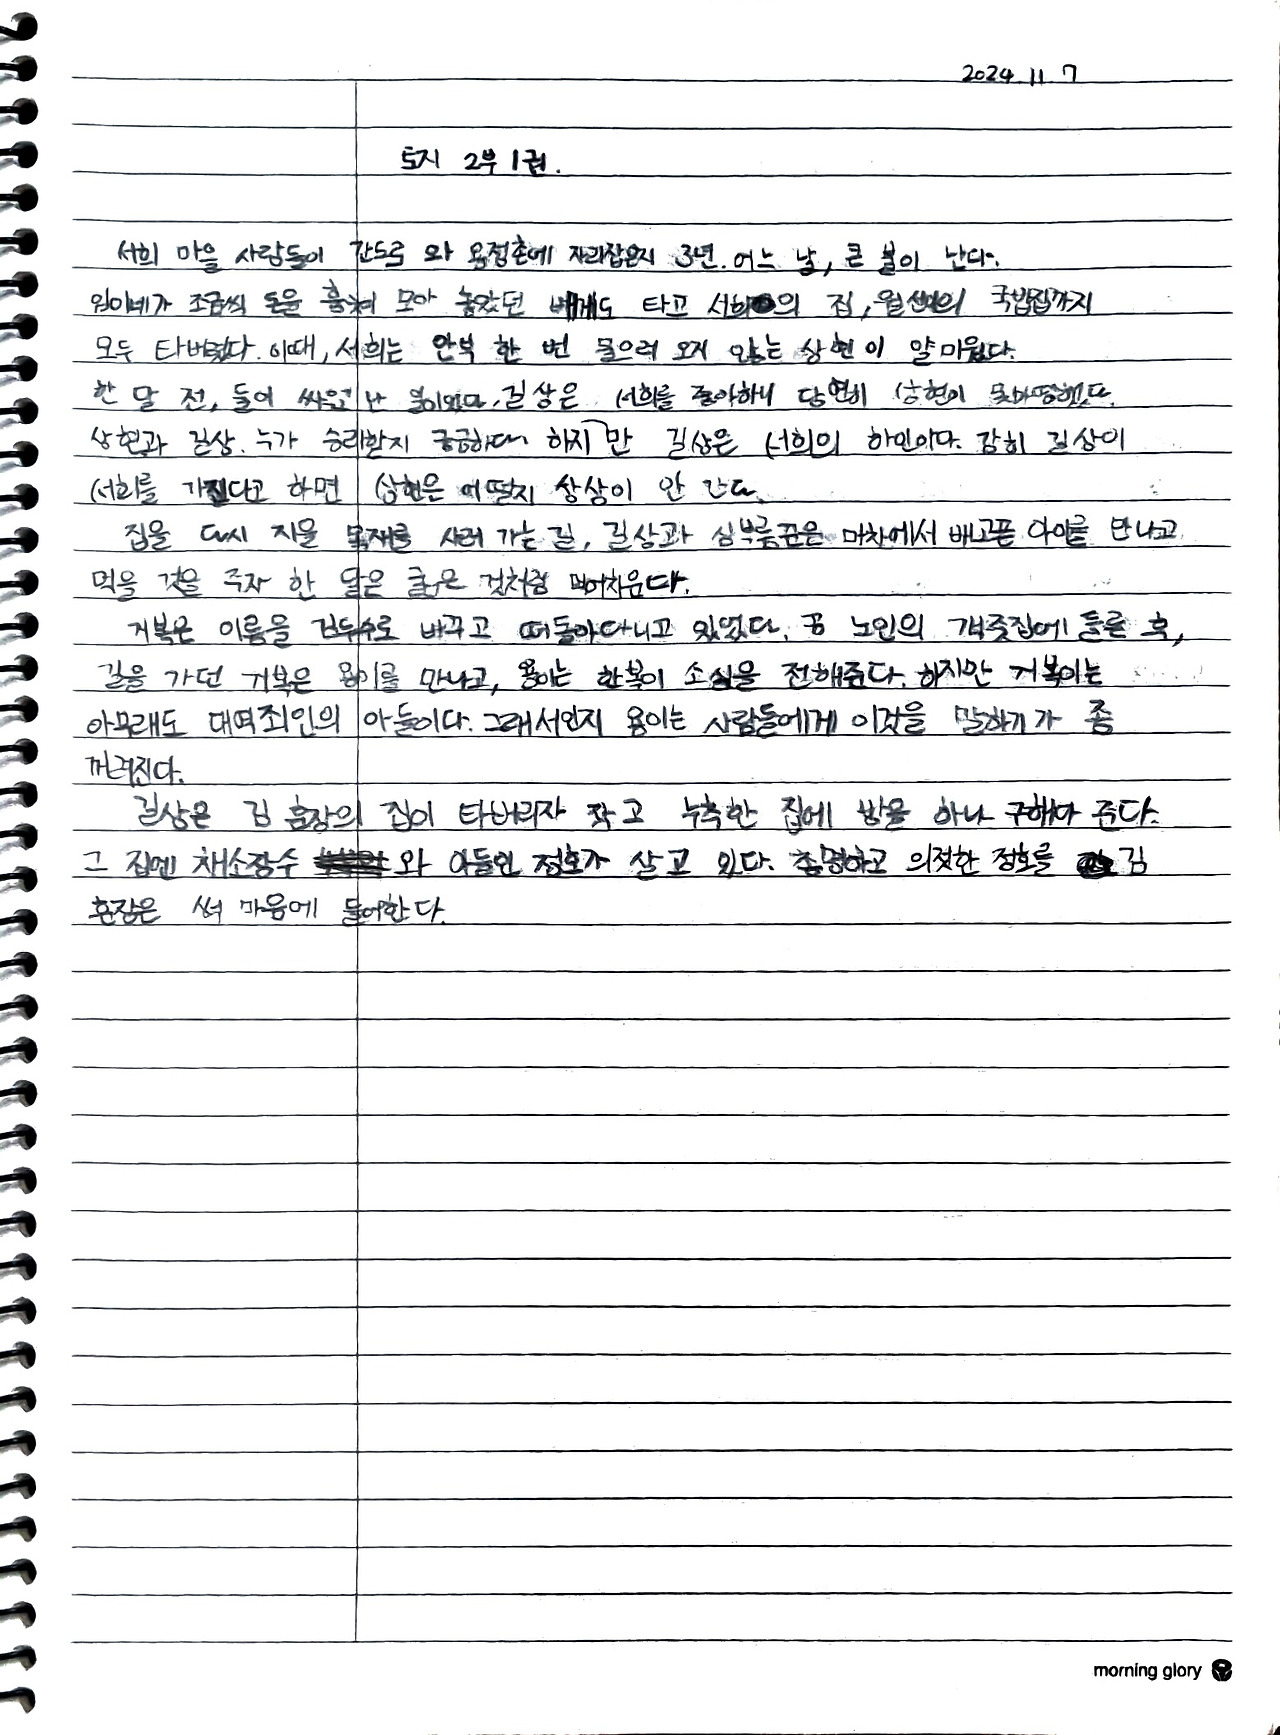 2024. 11. 7
토지 2부 1권.
서희 마을 사람들이 간도로 와 용정촌에 자리잡은지 3년. 어느 날, 큰 불이 난다.
임이네가 조금씩 돈을 훔쳐 모아 놓았던 베개도 타고 서희의 집, 월선의 국밥집까지
모두 타버렸다. 이때, 서희는 안부 한 번 물으러 오지 않는 상현이 얄미웠다.
한 달 전, 둘이 싸웠 난 길상은 서희를 좋아하니 당연히 상현이 못마땅했다.
상현과 길상. 누가 승리할지 궁금하다. 하지만 길상은 서희의 하인이다. 감히 길상이
서희를 가진다고 하면 상현은 어떨지 상상이 안 간다.
집을 다시 지을 목재를 사러 가는 길, 길상과 심부름꾼은 마차에서 배고픈 아이를 만나고
먹을 것을 주자 한 달은 굶은 것처럼 먹어치운다.
거복은 이름을 김두수로 바꾸고 떠돌아다니고 있었다. 공 노인의 객줏집에 들른 후,
길을 가던 거복은 용이를 만나고, 용이는 한복이 소식을 전해준다. 하지만 거복이는
아무래도 대역죄인의 아들이다. 그래서인지 용이는 사람들에게 이것을 말하기가 좀
꺼려진다.
길상은 김 훈장의 집이 타버리자 작고 누추한 집에 방을 하나 구해다 준다.
그 집엔 채소장수 와 아들인 정호가 살고 있다. 총명하고 의젓한 정호를 김
훈장은 썩 마음에 들어한다.
morning glory